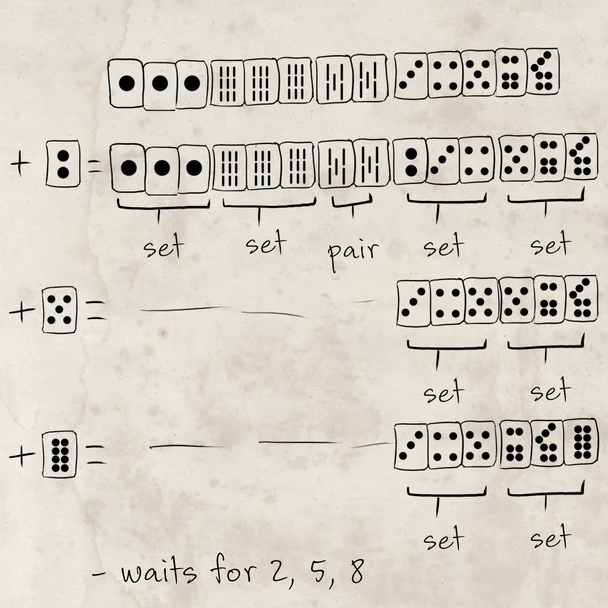 + =
set set pair set set
+ =
set set
+ =
set set
- waits for 2, 5, 8